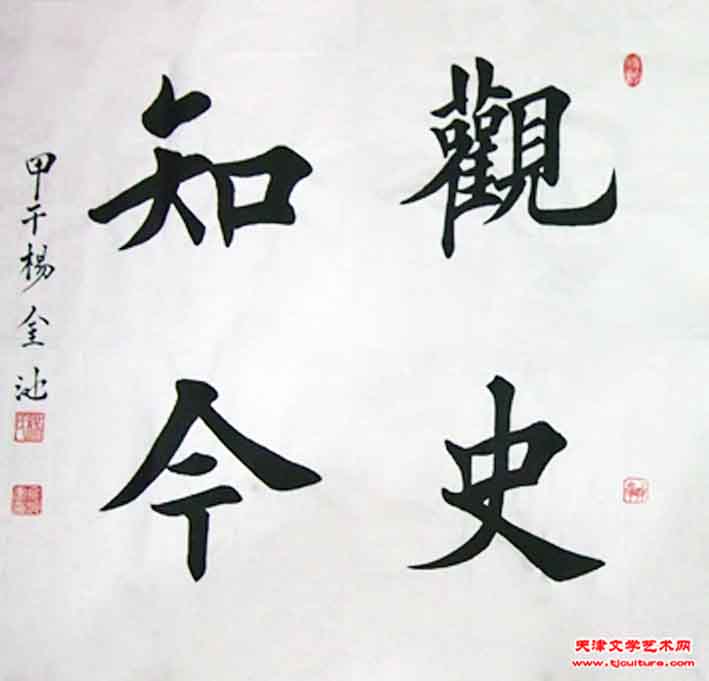 觀史
知今
甲午楊金池
天津文学艺术网
www.tjculture.com